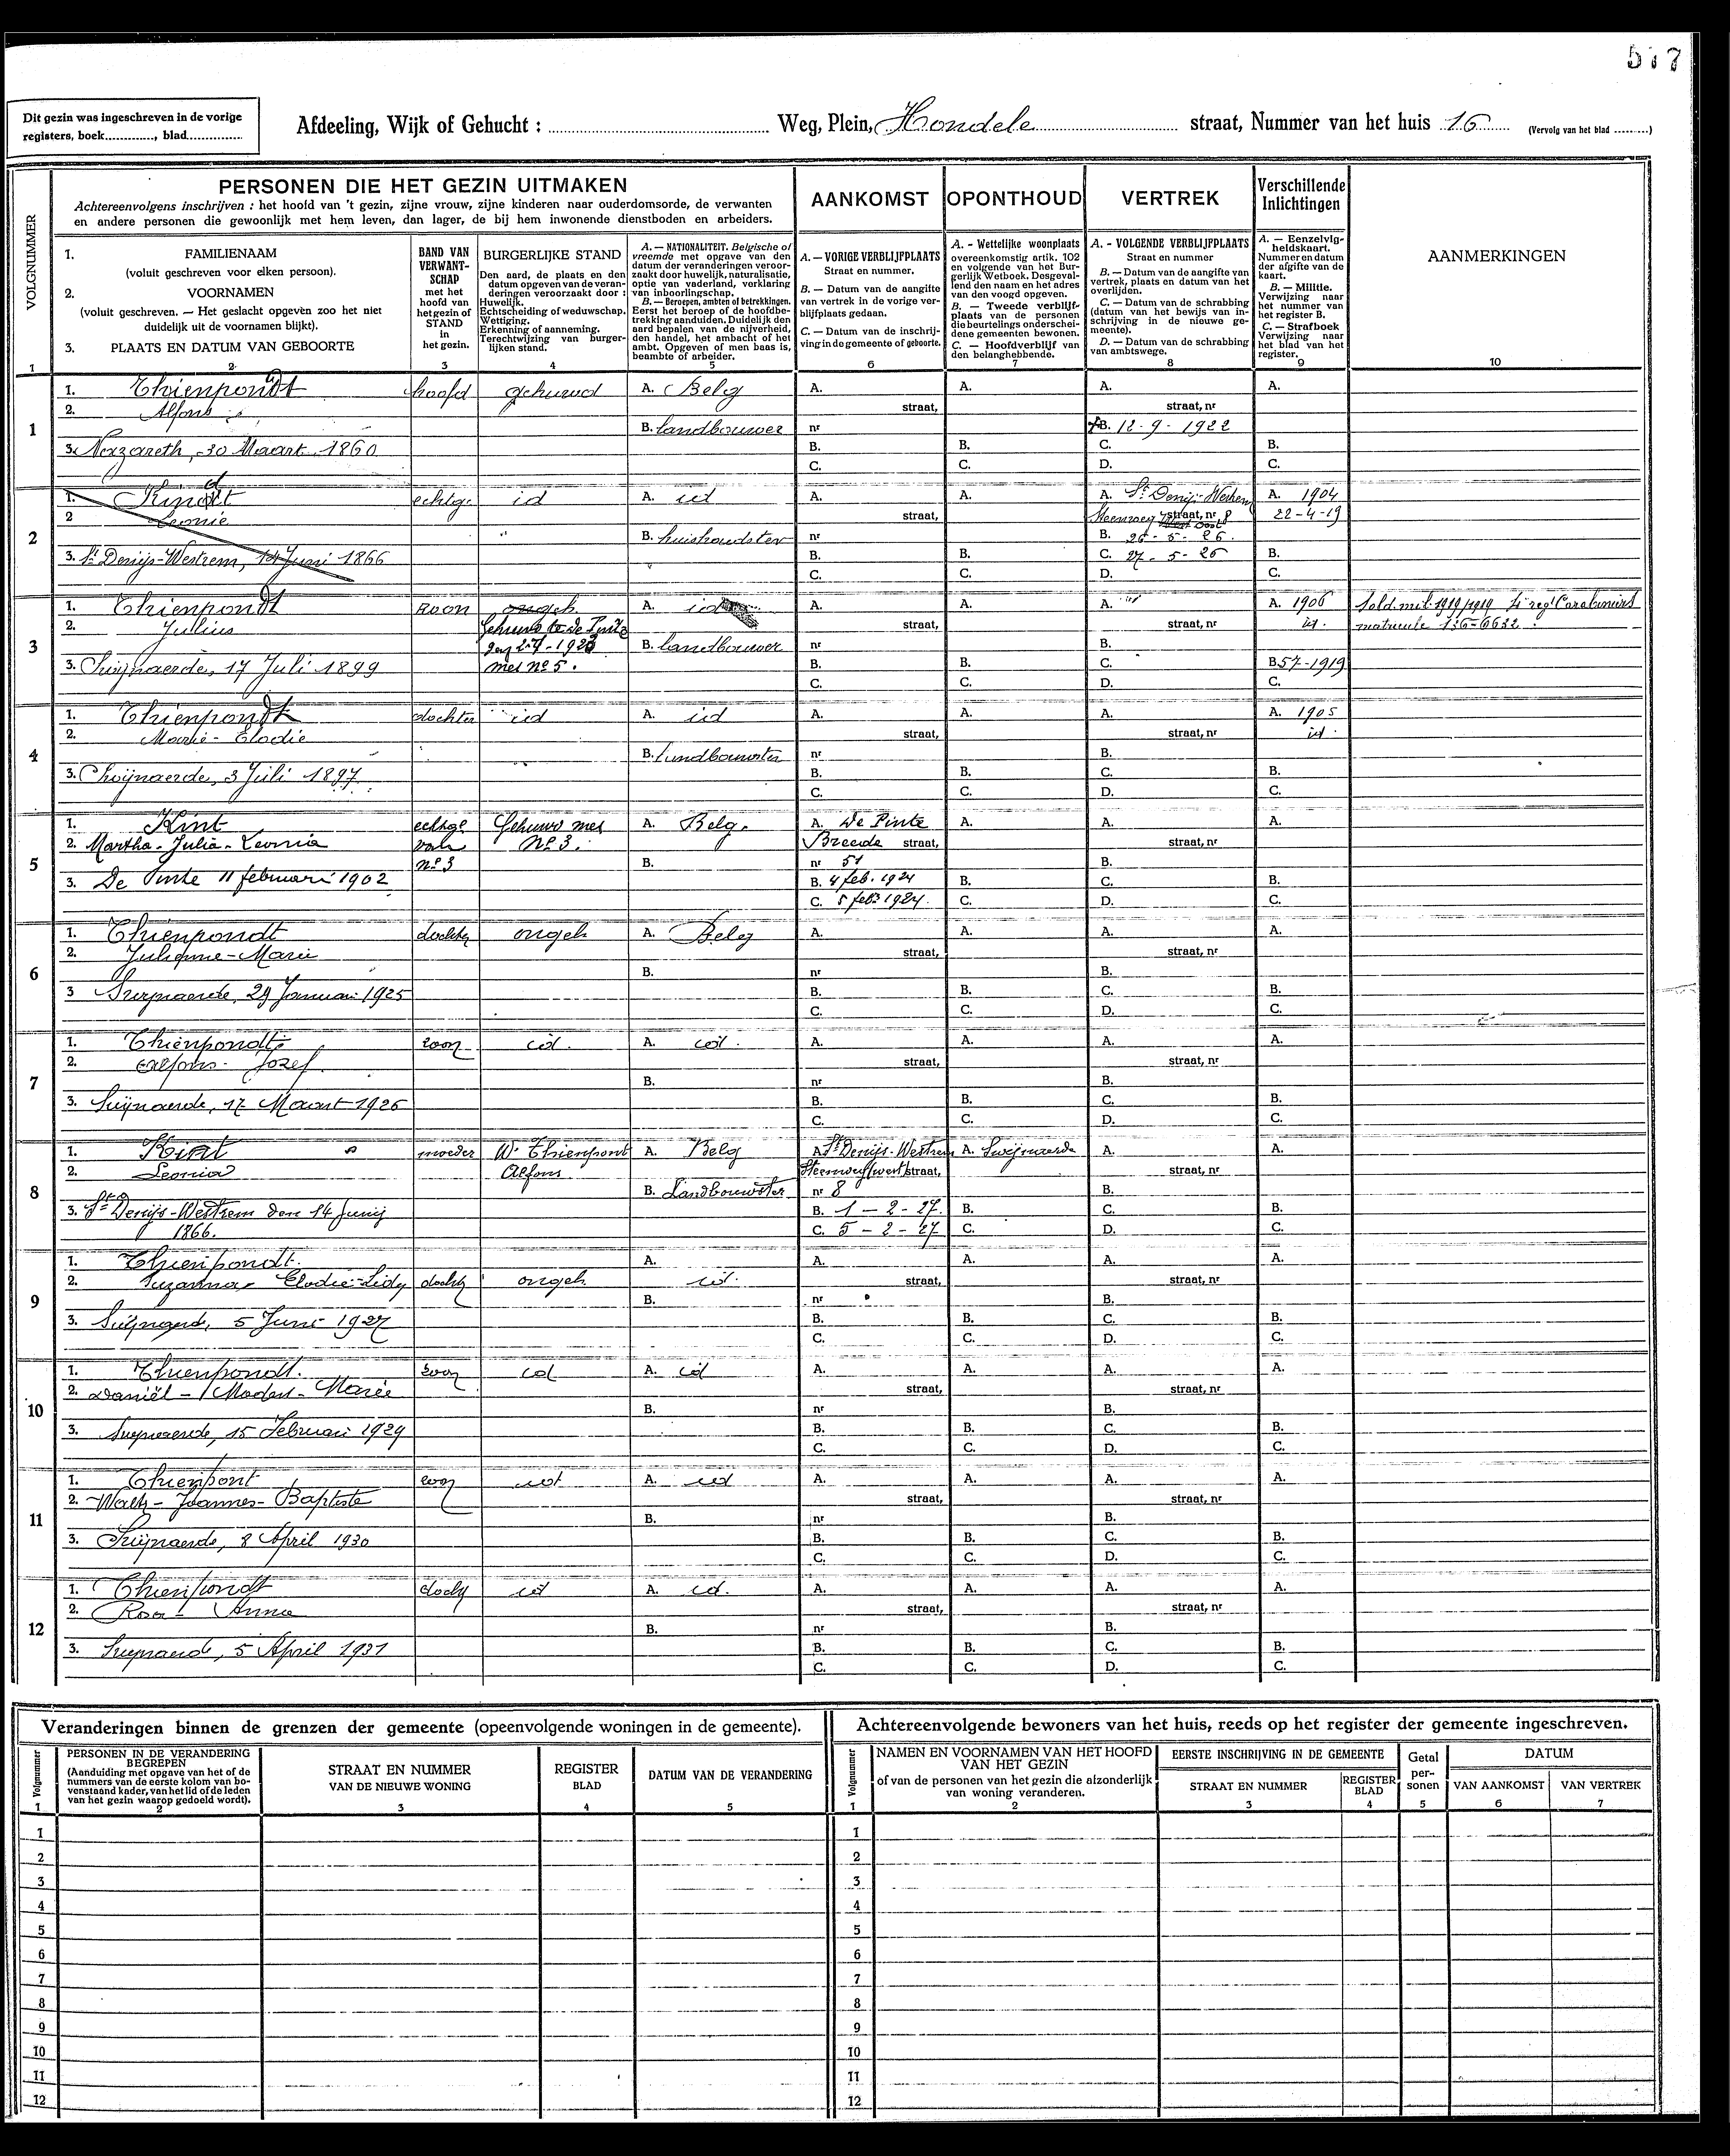 577
Dit gezin was ingeschreven in de vorige
registers, boek............, blad..............
Afdeeling, Wijk of Gehucht : ............ Weg, Plein, Hondele straat, Nummer van het huis 16 (Vervolg van het blad .........)
VOLGNUMMER
PERSONEN DIE HET GEZIN UITMAKEN
Achtereenvolgens inschrijven : het hoofd van 't gezin, zijne vrouw, zijne kinderen naar ouderdomsorde, de verwanten
en andere personen die gewoonlijk met hem leven, dan lager, de bij hem inwonende dienstboden en arbeiders.
AANKOMST
OPONTHOUD
VERTREK
Verschillende
Inlichtingen
1. FAMILIENAAM
(voluit geschreven voor elken persoon).
2. VOORNAMEN
(voluit geschreven. — Het geslacht opgeven zoo het niet
duidelijk uit de voornamen blijkt).
3. PLAATS EN DATUM VAN GEBOORTE
BAND VAN
VERWANT-
SCHAP
met het
hoofd van
het gezin of
STAND
in
het gezin.
BURGERLIJKE STAND
Den aard, de plaats en den
datum opgeven van de veran-
deringen veroorzaakt door :
Huwelijk.
Echtscheiding of weduwschap.
Wettiging.
Erkenning of aanneming.
Terechtwijzing van burger-
lijken stand.
A. — NATIONALITEIT. Belgische of
vreemde met opgave van den
datum der veranderingen veroor-
zaakt door huwelijk, naturalisatie,
optie van vaderland, verklaring
van inboorlingschap.
B. — Beroepen, ambten of betrekkingen.
Eerst het beroep of de hoofdbe-
trekking aanduiden. Duidelijk den
aard bepalen van de nijverheid,
den handel, het ambacht of het
ambt. Opgeven of men baas is,
beambte of arbeider.
A. — VORIGE VERBLIJFPLAATS
Straat en nummer.
B. — Datum van de aangifte
van vertrek in de vorige ver-
blijfplaats gedaan.
C. — Datum van de inschrij-
ving in de gemeente of geboorte.
A. - Wettelijke woonplaats
overeenkomstig artik. 102
en volgende van het Bur-
gerlijk Wetboek. Desgeval-
lend den naam en het adres
van den voogd opgeven.
B. — Tweede verblijf-
plaats van de personen
die beurtelings onderschei-
dene gemeenten bewonen.
C. — Hoofdverblijf van
den belanghebbende.
A. - VOLGENDE VERBLIJFPLAATS
Straat en nummer
B. — Datum van de aangifte van
vertrek, plaats en datum van het
overlijden.
C. — Datum van de schrabbing
(datum van het bewijs van in-
schrijving in de nieuwe ge-
meente).
D. — Datum van de schrabbing
van ambtswege.
A. — Eenzelvig-
heidskaart.
Nummer en datum
der afgifte van de
kaart.
B. — Militie.
Verwijzing naar
het nummer van
het register B.
C. — Strafboek
Verwijzing naar
het blad van het
register.
AANMERKINGEN
1 2 3 4 5 6 7 8 9 10
1
1. Thienpondt hoofd gehuwd A. Belg A. A. A. A.
2. Alfons straat, straat, nr
B. landbouwer nr B. 12-9-1922
3. Nazareth, 30 Maart 1860 B. B. C. B.
C. C. D. C.
2
1. Kindt echtg. id A. id A. A. A. St Denijs-Westrem A. 1904
2 Leonie straat, Steenweg straat, nr 8 22-4-19
B. huishoudster nr B. 26-5-26.
3. St Denijs-Westrem, 14 Juni 1866 B. B. C. 27-5-26 B.
C. C. D. C.
3
1. Thienpondt zoon ongeh. A. id A. A. A. A. 1906 Sold. mil. 1919/1919 4e regt Carabiniers
2. Julius Gehuwd te de Pinte straat, straat, nr id. matricule 136-6632.
B. landbouwer nr B.
3. Swijnaerde, 17 Juli 1899 met no 5. B. B. C. B 57-1919
C. C. D. C.
4
1. Thienpondt dochter id A. id A. A. A. A. 1905
2. Marie-Elodie straat, straat, nr id.
B. landbouwster nr B.
3. Swijnaerde, 3 Juli 1897. B. B. C. B.
C. C. D. C.
5
1. Kint echtge Gehuwd met A. Belg. A. De Pinte A. A. A.
2. Martha-Julia-Leonia van No 3. Breede straat, straat, nr
no 3 B. nr 51 B.
3. De Pinte 11 februari 1902 B. 4 feb. 1924 B. C. B.
C. 5 feb. 1924. C. D. C.
6
1. Thienpondt dochter ongeh A. Belg A. A. A. A.
2. Julienne-Marie straat, straat, nr
B. nr B.
3 Swijnaerde, 29 Januari 1925 B. B. C. B.
C. C. D. C.
7
1. Thienpondt zoon id. A. id. A. A. A. A.
2. Alfons-Jozef straat, straat, nr
B. nr B.
3. Swijnaerde, 17 Maart 1926 B. B. C. B.
C. C. D. C.
8
1. Kint moeder We Thienpont A. Belg A. St Denijs-Westrem A. Swijnaerde A. A.
2. Leonia Alfons Steenweg (west) straat, straat, nr
B. Landbouwster nr 8 B.
3. St Denijs-Westrem den 14 Junij B. 1-2-27. B. C. B.
1866. C. 5-2-27 C. D. C.
9
1. Thienpondt. A. A. A. A. A.
2. Suzanna-Elodie-Lidy docht ongeh. id. straat, straat, nr
B. nr B.
3. Swijnaerd, 5 Juni 1927 B. B. C. B.
C. C. D. C.
10
1. Thienpondt. zoon id A. id A. A. A. A.
2. Daniël-Madar-Marie straat, straat, nr
B. nr B.
3. Swijnaerde, 15 Februari 1929 B. B. C. B.
C. C. D. C.
11
1. Thienpont zoon id A. id A. A. A. A.
2. Walter-Joannes-Baptiste straat, straat, nr
B. nr B.
3. Swijnaerde, 8 April 1930 B. B. C. B.
C. C. D. C.
12
1. Thienpondt docht id A. id. A. A. A. A.
2. Rosa-Anna straat, straat, nr
B. nr B.
3. Swijnaerd, 5 April 1931 B. B. C. B.
C. C. D. C.
Veranderingen binnen de grenzen der gemeente (opeenvolgende woningen in de gemeente).
Volgnummer
PERSONEN IN DE VERANDERING
BEGREPEN
(Aanduiding met opgave van het of de
nummers van de eerste kolom van bo-
venstaand kader, van het lid of de leden
van het gezin waarop gedoeld wordt).
STRAAT EN NUMMER
VAN DE NIEUWE WONING
REGISTER
BLAD
DATUM VAN DE VERANDERING
1 2 3 4 5
1
2
3
4
5
6
7
8
9
10
11
12
Achtereenvolgende bewoners van het huis, reeds op het register der gemeente ingeschreven.
Volgnummer
NAMEN EN VOORNAMEN VAN HET HOOFD
VAN HET GEZIN
of van de personen van het gezin die afzonderlijk
van woning veranderen.
EERSTE INSCHRIJVING IN DE GEMEENTE
STRAAT EN NUMMER
REGISTER
BLAD
Getal
per-
sonen
DATUM
VAN AANKOMST
VAN VERTREK
1 2 3 4 5 6 7
1
2
3
4
5
6
7
8
9
10
11
12